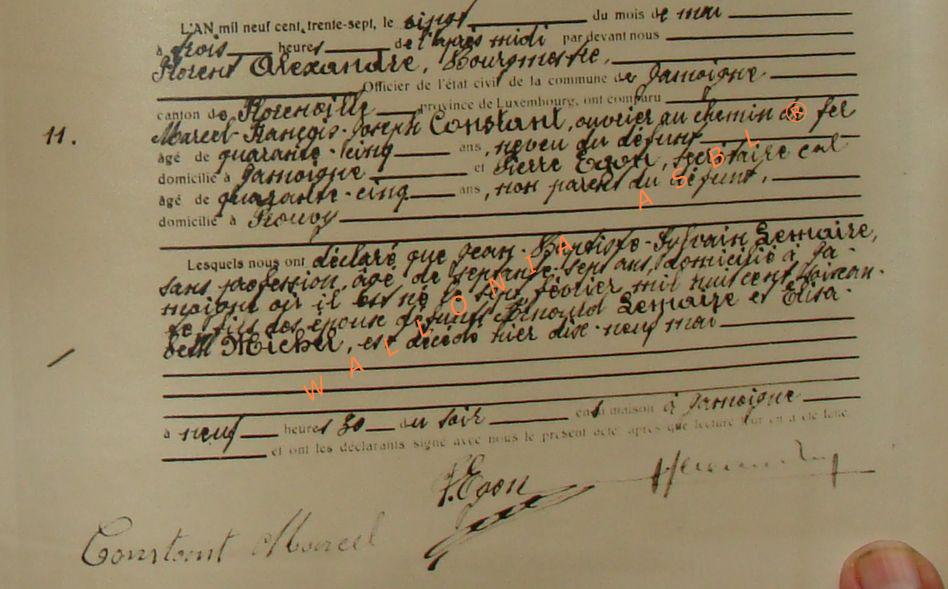 L'AN mil neuf cent, trente-sept, le vingt du mois de mai
à trois heures de l'après midi par devant nous
Florent Alexandre, Bourgmestre,
Officier de l'état civil de la commune de Jamoigne
canton de Florenville province de Luxembourg, ont comparu
11. Marcel-François-Joseph Constant, ouvrier au chemin de fer
âgé de quarante-cinq ans, neveu du défunt
domicilié à Jamoigne et Pierre Egon, secrétaire cal
âgé de quarante-cinq ans, non parent du défunt,
domicilié à
Lesquels nous ont déclaré que Jean-Baptiste-Sylvain Lemaire,
sans profession, âgé de septante-sept ans, domicilié à Ja
moigne où il est né le sept février mil huit cent soixan-
te fils des époux défunts Lemaire et Elisa-
beth Michel, est décédé hier dix-neuf mai
à neuf heures 30 du soir en sa maison à Jamoigne
et ont les déclarants signé avec nous le présent acte, après que lecture leur en a été faite.
P. Egon
Constant Marcel
WALLONIA ASBL ®